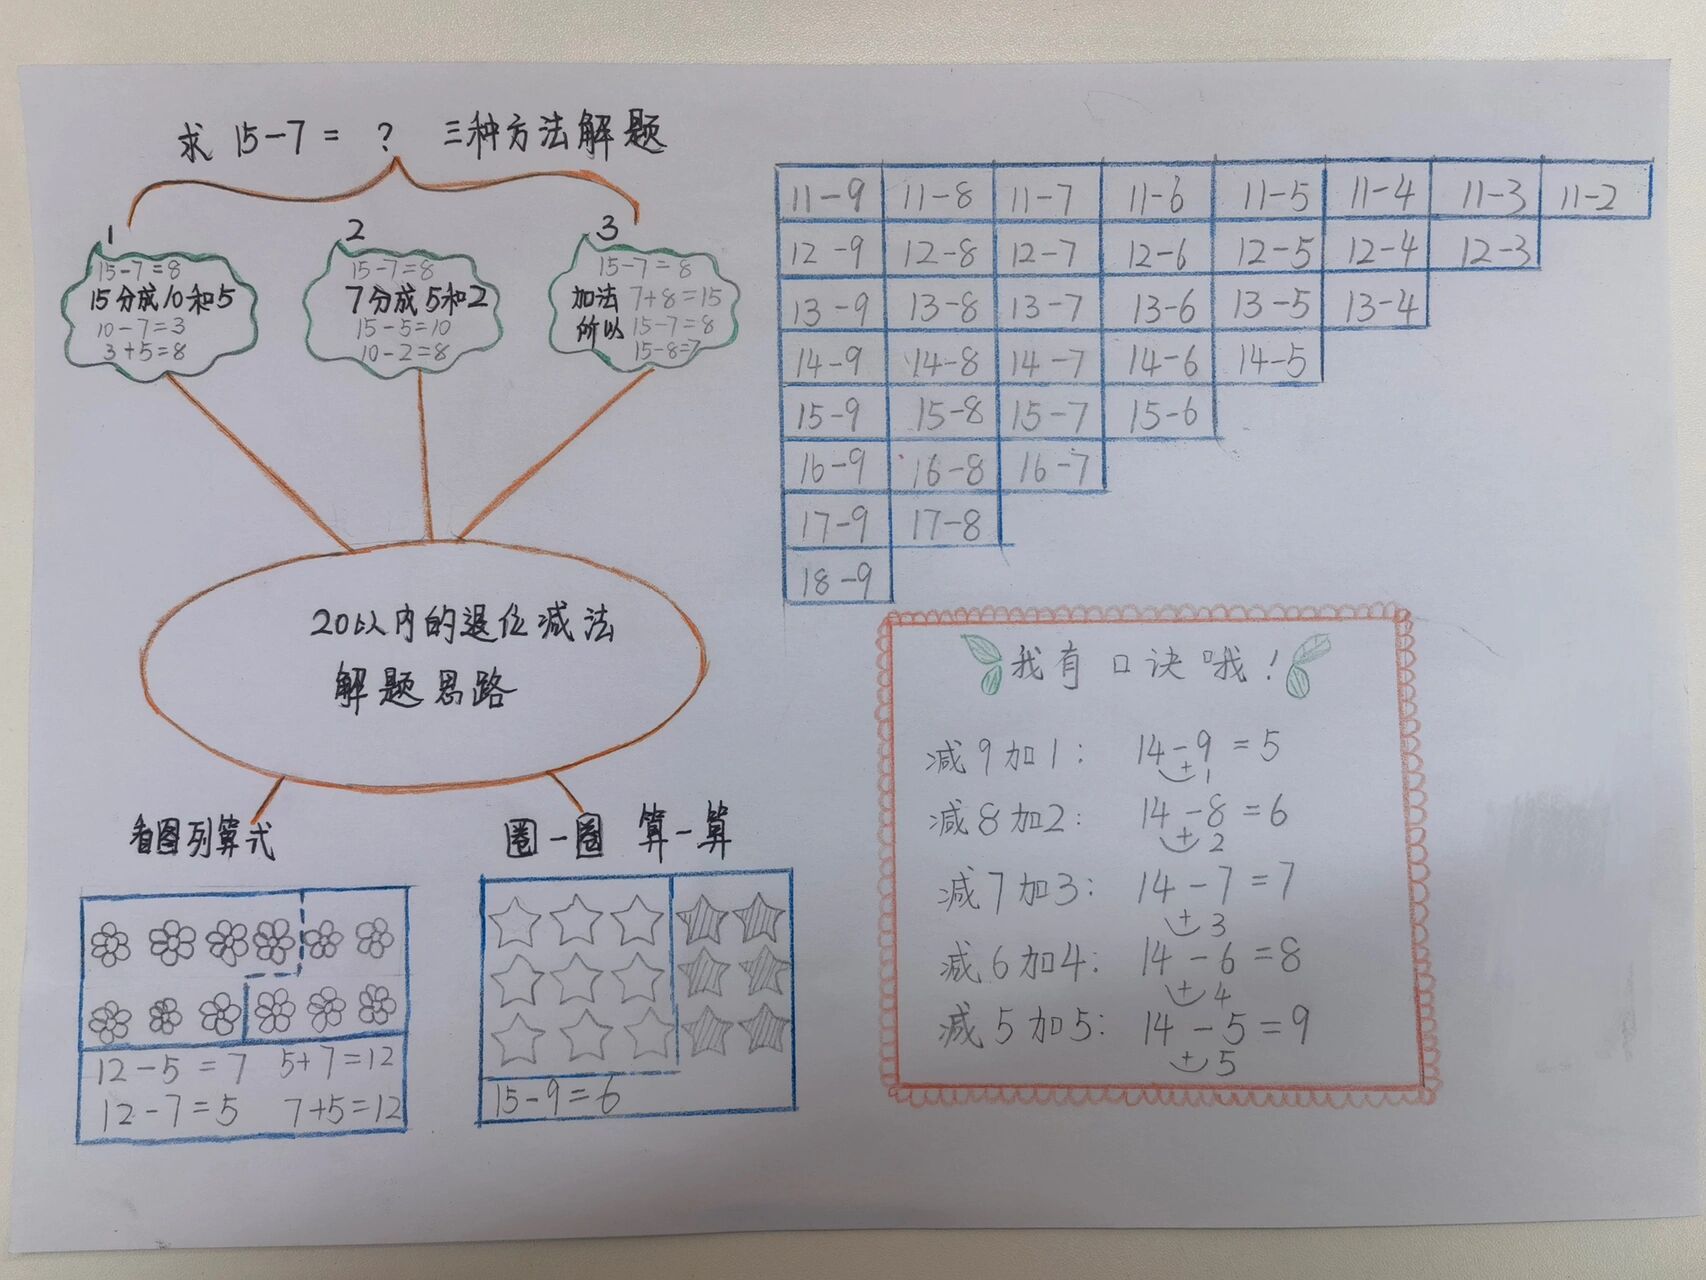 求 15-7= ? 三种方法解题
1
15-7=8
15分成10和5
10-7=3
3+5=8
2
15-7=8
7分成5和2
15-5=10
10-2=8
3
15-7=8
加法 7+8=15
所以 15-7=8
15-8=7
20以内的退位减法
解题思路
看图列算式
12-5=7 5+7=12
12-7=5 7+5=12
圈一圈 算一算
15-9=6
11-9 11-8 11-7 11-6 11-5 11-4 11-3 11-2
12-9 12-8 12-7 12-6 12-5 12-4 12-3
13-9 13-8 13-7 13-6 13-5 13-4
14-9 14-8 14-7 14-6 14-5
15-9 15-8 15-7 15-6
16-9 16-8 16-7
17-9 17-8
18-9
我有口诀哦!
减9加1: 14-9=5
+1
减8加2: 14-8=6
+2
减7加3: 14-7=7
+3
减6加4: 14-6=8
+4
减5加5: 14-5=9
+5